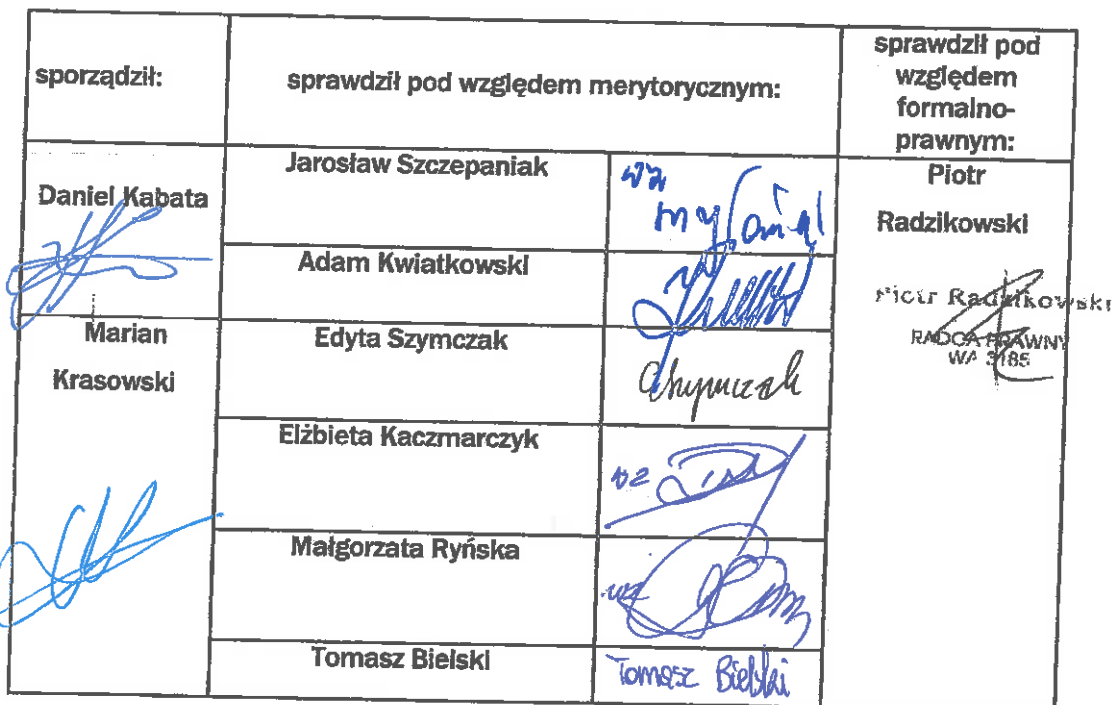 sporządził:
sprawdził pod względem merytorycznym:
sprawdził pod
względem
formalno-
prawnym:
Daniel Kabata
Jarosław Szczepaniak
wz
Piotr
Radzikowski
Adam Kwiatkowski
Piotr Radzikowski
RADCA PRAWNY
WA 3185
Marian
Krasowski
Edyta Szymczak
Elżbieta Kaczmarczyk
wz
Małgorzata Ryńska
wz
Tomasz Bielski
Tomasz Bielski